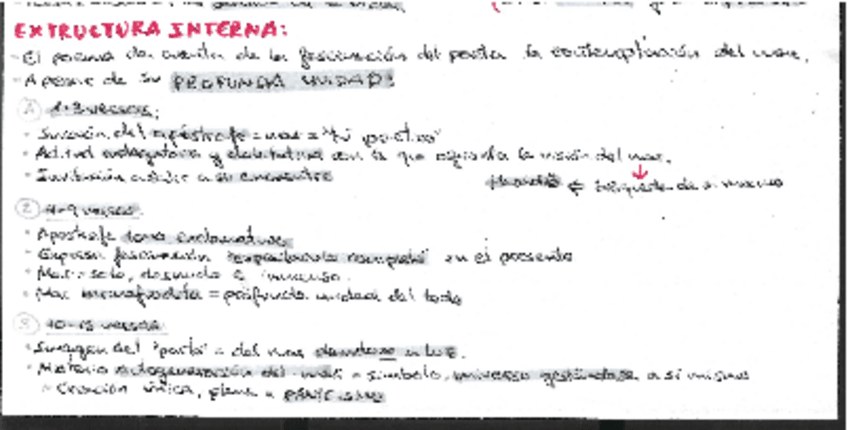 EXTRUCTURA INTERNA:
- El poema da cuenta de la fascinación del poeta la contemplación del mar.
- A pesar de su PROFUNDA UNIDAD:
① 1-3 versos:
· Inicación del apóstrofe = mar = "tú poético"
· Actitud y dubitativa con la que afronta la visión del mar.
· Invitación a su encuentro
búsqueda de sí mismo
② 4-9 versos.
· Apóstrofe tono exclamativo
· Expresa fascinación completo" en el presente
· Mar = solo, desnudo e inmenso.
· Mar = profunda unidad del todo
③ 10-13 versos
· Imagen del "parto" = del mar dándose a luz.
· Materia autogeneración del mar = símbolo, universo gestándose a sí mismo
Creación única, plena =